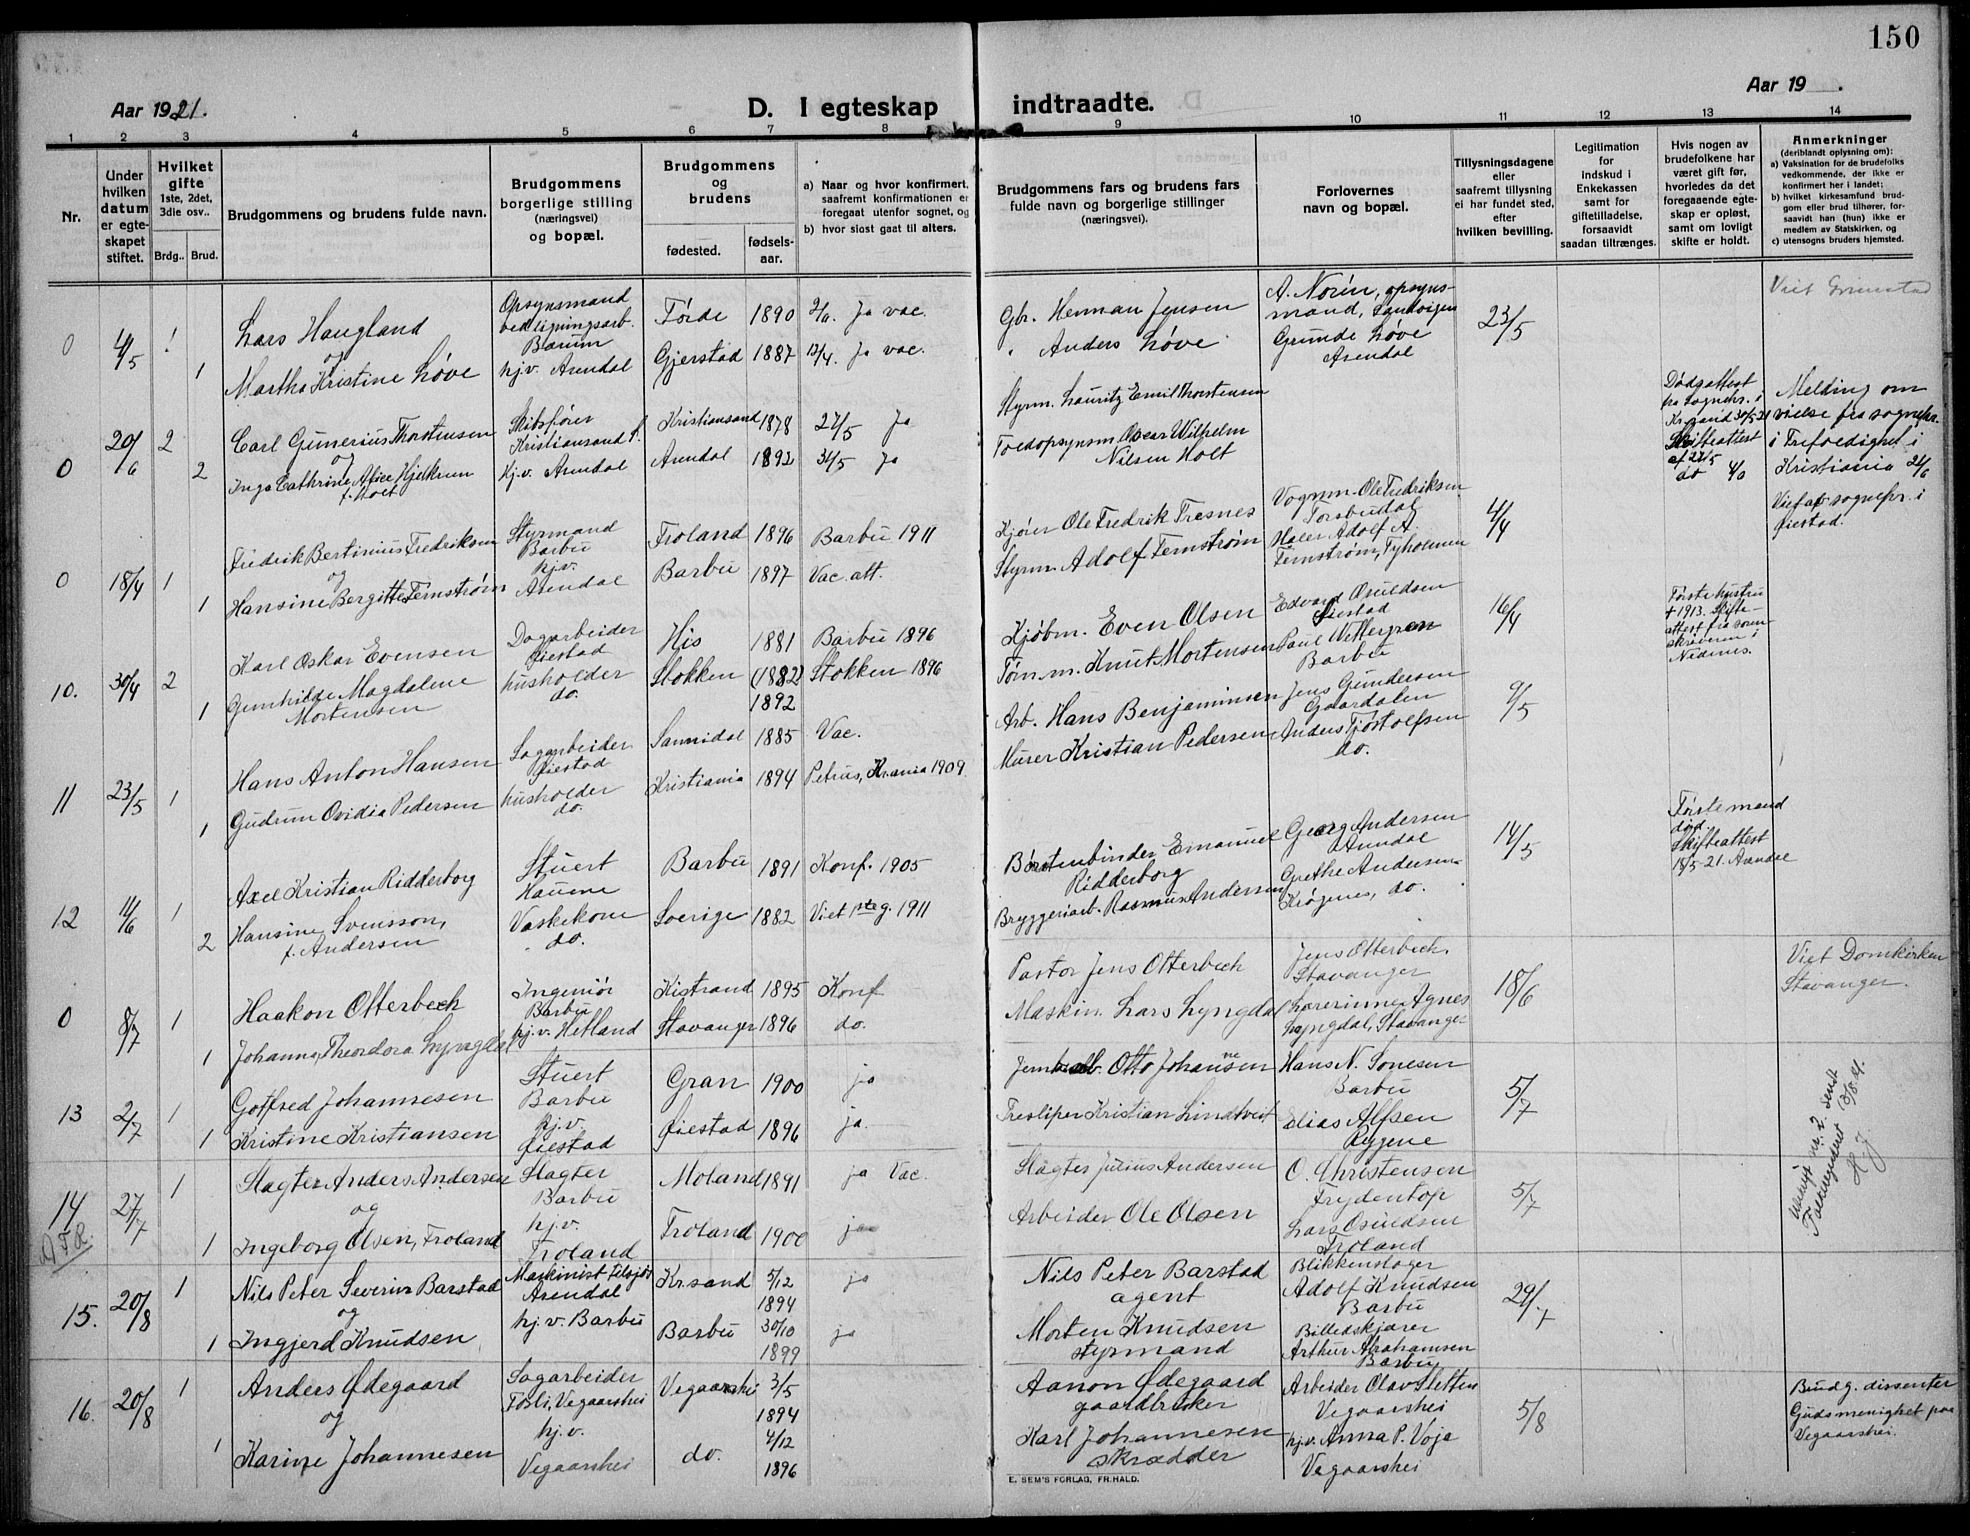 150
Aar 1921.
D. I egteskap
indtraadte.
Aar 19 .
1 2 3 4 5 6 7 8 9 10 11 12 13 14
Nr.
Under hvilken datum er egteskapet stiftet.
Hvilket gifte
1ste, 2det, 3die osv..
Brdg.. Brud.
Brudgommens og brudens fulde navn.
Brudgommens borgerlige stilling (næringsvei) og bopæl.
Brudgommens og brudens
fødested.
fødsels-aar.
a) Naar og hvor konfirmert, saafremt konfirmationen er foregaat utenfor sognet, og
b) hvor sidst gaat til alters.
Brudgommens fars og brudens fars fulde navn og borgerlige stillinger (næringsvei).
Forlovernes navn og bopæl.
Tillysningsdagene eller saafremt tillysning ei har fundet sted, efter hvilken bevilling.
Legitimation for indskud i Enkekassen samt for giftetilladelse, forsaavidt saadan tiltrænges.
Hvis nogen av brudefolkene har været gift før, hvorledes da det foregaaende egteskap er opløst, samt om lovligt skifte er holdt.
Anmerkninger
(deriblandt oplysning om):
a) Vaksination for de brudefolks vedkommende, der ikke er konfirmert her i landet;
b) hvilket kirkesamfund brudgom eller brud tilhører, forsaavidt han (hun) ikke er medlem av Statskirken, og
c) utensogns bruders hjemsted.
0 4/5 1 Lars Haugland Opsynsmand Førde 1890 Ja vac.
og Bærum
1 Martha Kristine Løve hjv. Arendal Gjerstad 1887 12/4. Ja vac.
Gbr. Herman Jensen A. Norin, opsynsmand, 23/5
Anders Løve Grunde Løve Arendal
Viet Grimstad
0 20/6 2 Carl Gunerius Thorstensen Skibsfører Kristiansand S. Kristiansand 1878 27/5 Ja
og
2 Inga Cathrine Alice Hjelkrem f. Holt hj.v. Arendal Arendal 1892 31/5 Ja
Styrm. Lauritz Emil Thorstensen
Toldopsynsm. Oscar Wilhelm Nilsen Holt
Dødsattest fra sognepr. i Kr.sand 30/5 21
Skifteattest af 27/5
do 4/6
Melding om vielse fra sognepr. i Trefoldighet i Kristiania 24/6
0 18/4 1 Fredrik Bertinius Fredriksen Styrmand Barbu Froland 1896 Barbu 1911
og hj.v.
1 Hansine Bergitte Ternstrøm Arendal Barbu 1897 Vac. att.
Kjører Ole Fredrik Tresnes Vognm. Ole Fredriksen Torsbudal 4/4
Styrm. Adolf Ternstrøm Maler Adolf A. Ternstrøm, Tyholmen
Viet af sognepr. i Øiestad.
10. 30/4 2 Karl Oskar Evensen Dagarbeider Øiestad His 1881 Barbu 1896
1 Gunhilde Magdalene Mortensen husholder do. Stokken (1882) 1892 Stokken 1896
Kjøbm. Even Olsen Edvard Osuldsen Øiestad 16/4
Tøm.m. Knut Mortensen Paul Wettergren Barbu
Første hustru + 1913. Skifteattest fra sorenskriveren i Nedenes.
11 23/5 1 Hans Anton Hansen Sagarbeider Øiestad Sannidal 1885 Vac.
1 Gudrun Ovidia Pedersen husholder do. Kristiania 1894 Petrus, Kr.ania 1909
Arb. Hans Benjaminsen Jens Gundersen Gaardalen 9/5
Murer Kristian Pedersen Anders Tjøstolfsen do.
12 11/6 1 Axel Kristian Ridderborg Stuert Barbu 1891 Konf. 1905
2 Hansine Svensson, f. Andersen Vaskekone do. Sverige 1882 Viet 1ste g. 1911
Børstenbinder Emanuel Ridderborg Georg Andersen Arendal 14/5
Bryggeriarb. Rasmus Andersen Grethe Andersen Krøgenes, do.
Første mand død Skifteattest 18/5-21. Arendal
0 8/7 1 Haakon Otterbech Ingeniør Barbu Kistrand 1895 Konf
1 Johanna Theodora Lyngdal hj.v. Hetland Stavanger 1896 do.
Pastor Jens Otterbech Jens Otterbech, Stavanger 18/6
Maskin. Lars Lyngdal Lærerinne Agnes Lyngdal, Stavanger
Viet Domkirken Stavanger.
13 2/7 1 Gotfred Johannesen Stuert Barbu Gran 1900 ja
1 Kristine Kristiansen hj.v. Øiestad Øiestad 1896 ja.
Otto Johannesen Hans N. Sonesen Barbu 5/7
Tresliper Kristian Lindtveit Elias Alfsen Rygene
14 27/7 1 Slagter Anders Andersen Slagter Barbu Moland 1891 ja Vac.
og hj.v.
1 Ingeborg Olsen, Froland Froland Froland 1900 ja
Slagter Julius Andersen O. Christensen Frydentop 5/7
Arbeider Ole Olsen Lars Osuldsen Froland
Utskrift nr. 2. sendt Folkeregisteret 13/8 41. H J
15. 20/8 1 Nils Peter Severin Barstad Maskinist Arendal Kr.sand 5/12 1894 ja
og
1 Ingjerd Knudsen hj.v. Barbu Barbu 30/10 1899 ja
Nils Peter Barstad agent Blikkenslager Adolf Knudsen Barbu 29/7
Morten Knudsen styrmand Billedskjærer Arthur Abrahamsen Barbu
16. 20/8 1 Anders Ødegaard Sagarbeider Fosli, Vegaarshei Vegaarshei 3/5 1894
og hj.v.
1 Karine Johannesen Vegaarshei do. 4/12 1896
Aanon Ødegaard gaardbruker Arbeider Olav Sletten Vegaarshei 5/8
Karl Johannesen skrædder hj.v. Anna P. Voje Vegaarshei
Brudg. dissenter Gudsmenighet paa Vegaarshei.
E. SEM'S FORLAG, FR.HALD.